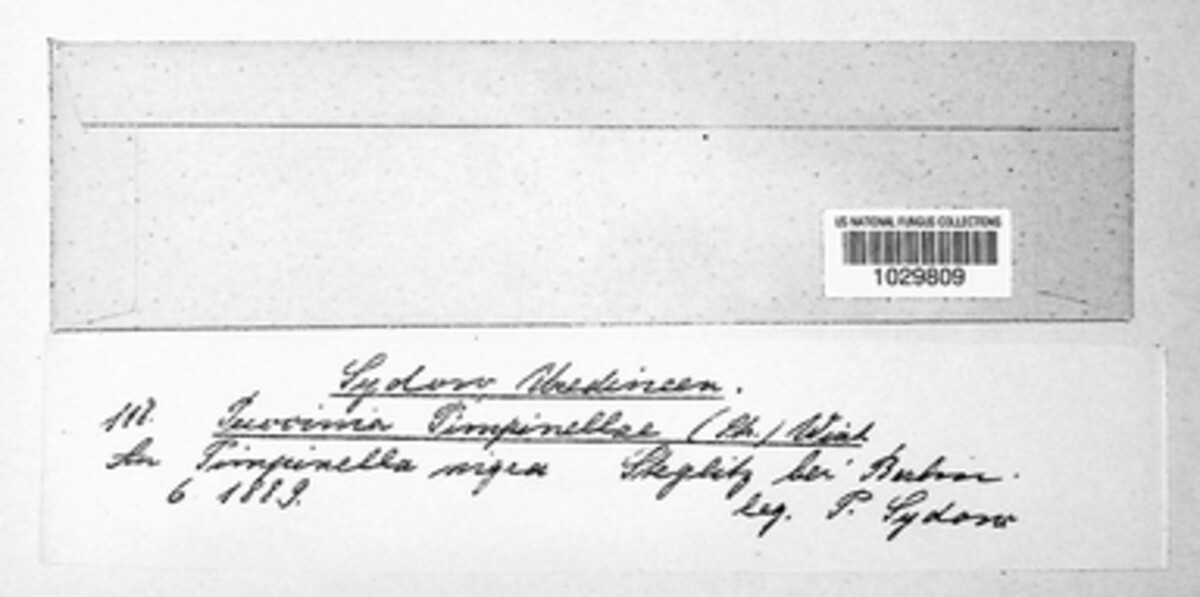 US NATIONAL FUNGUS COLLECTIONS
1029809
Sydow, Uredineen.
118. Puccinia Pimpinellae (Str.) Wint.
An Pimpinella nigra Steglitz bei Berlin.
6. 1889.
leg. P. Sydow